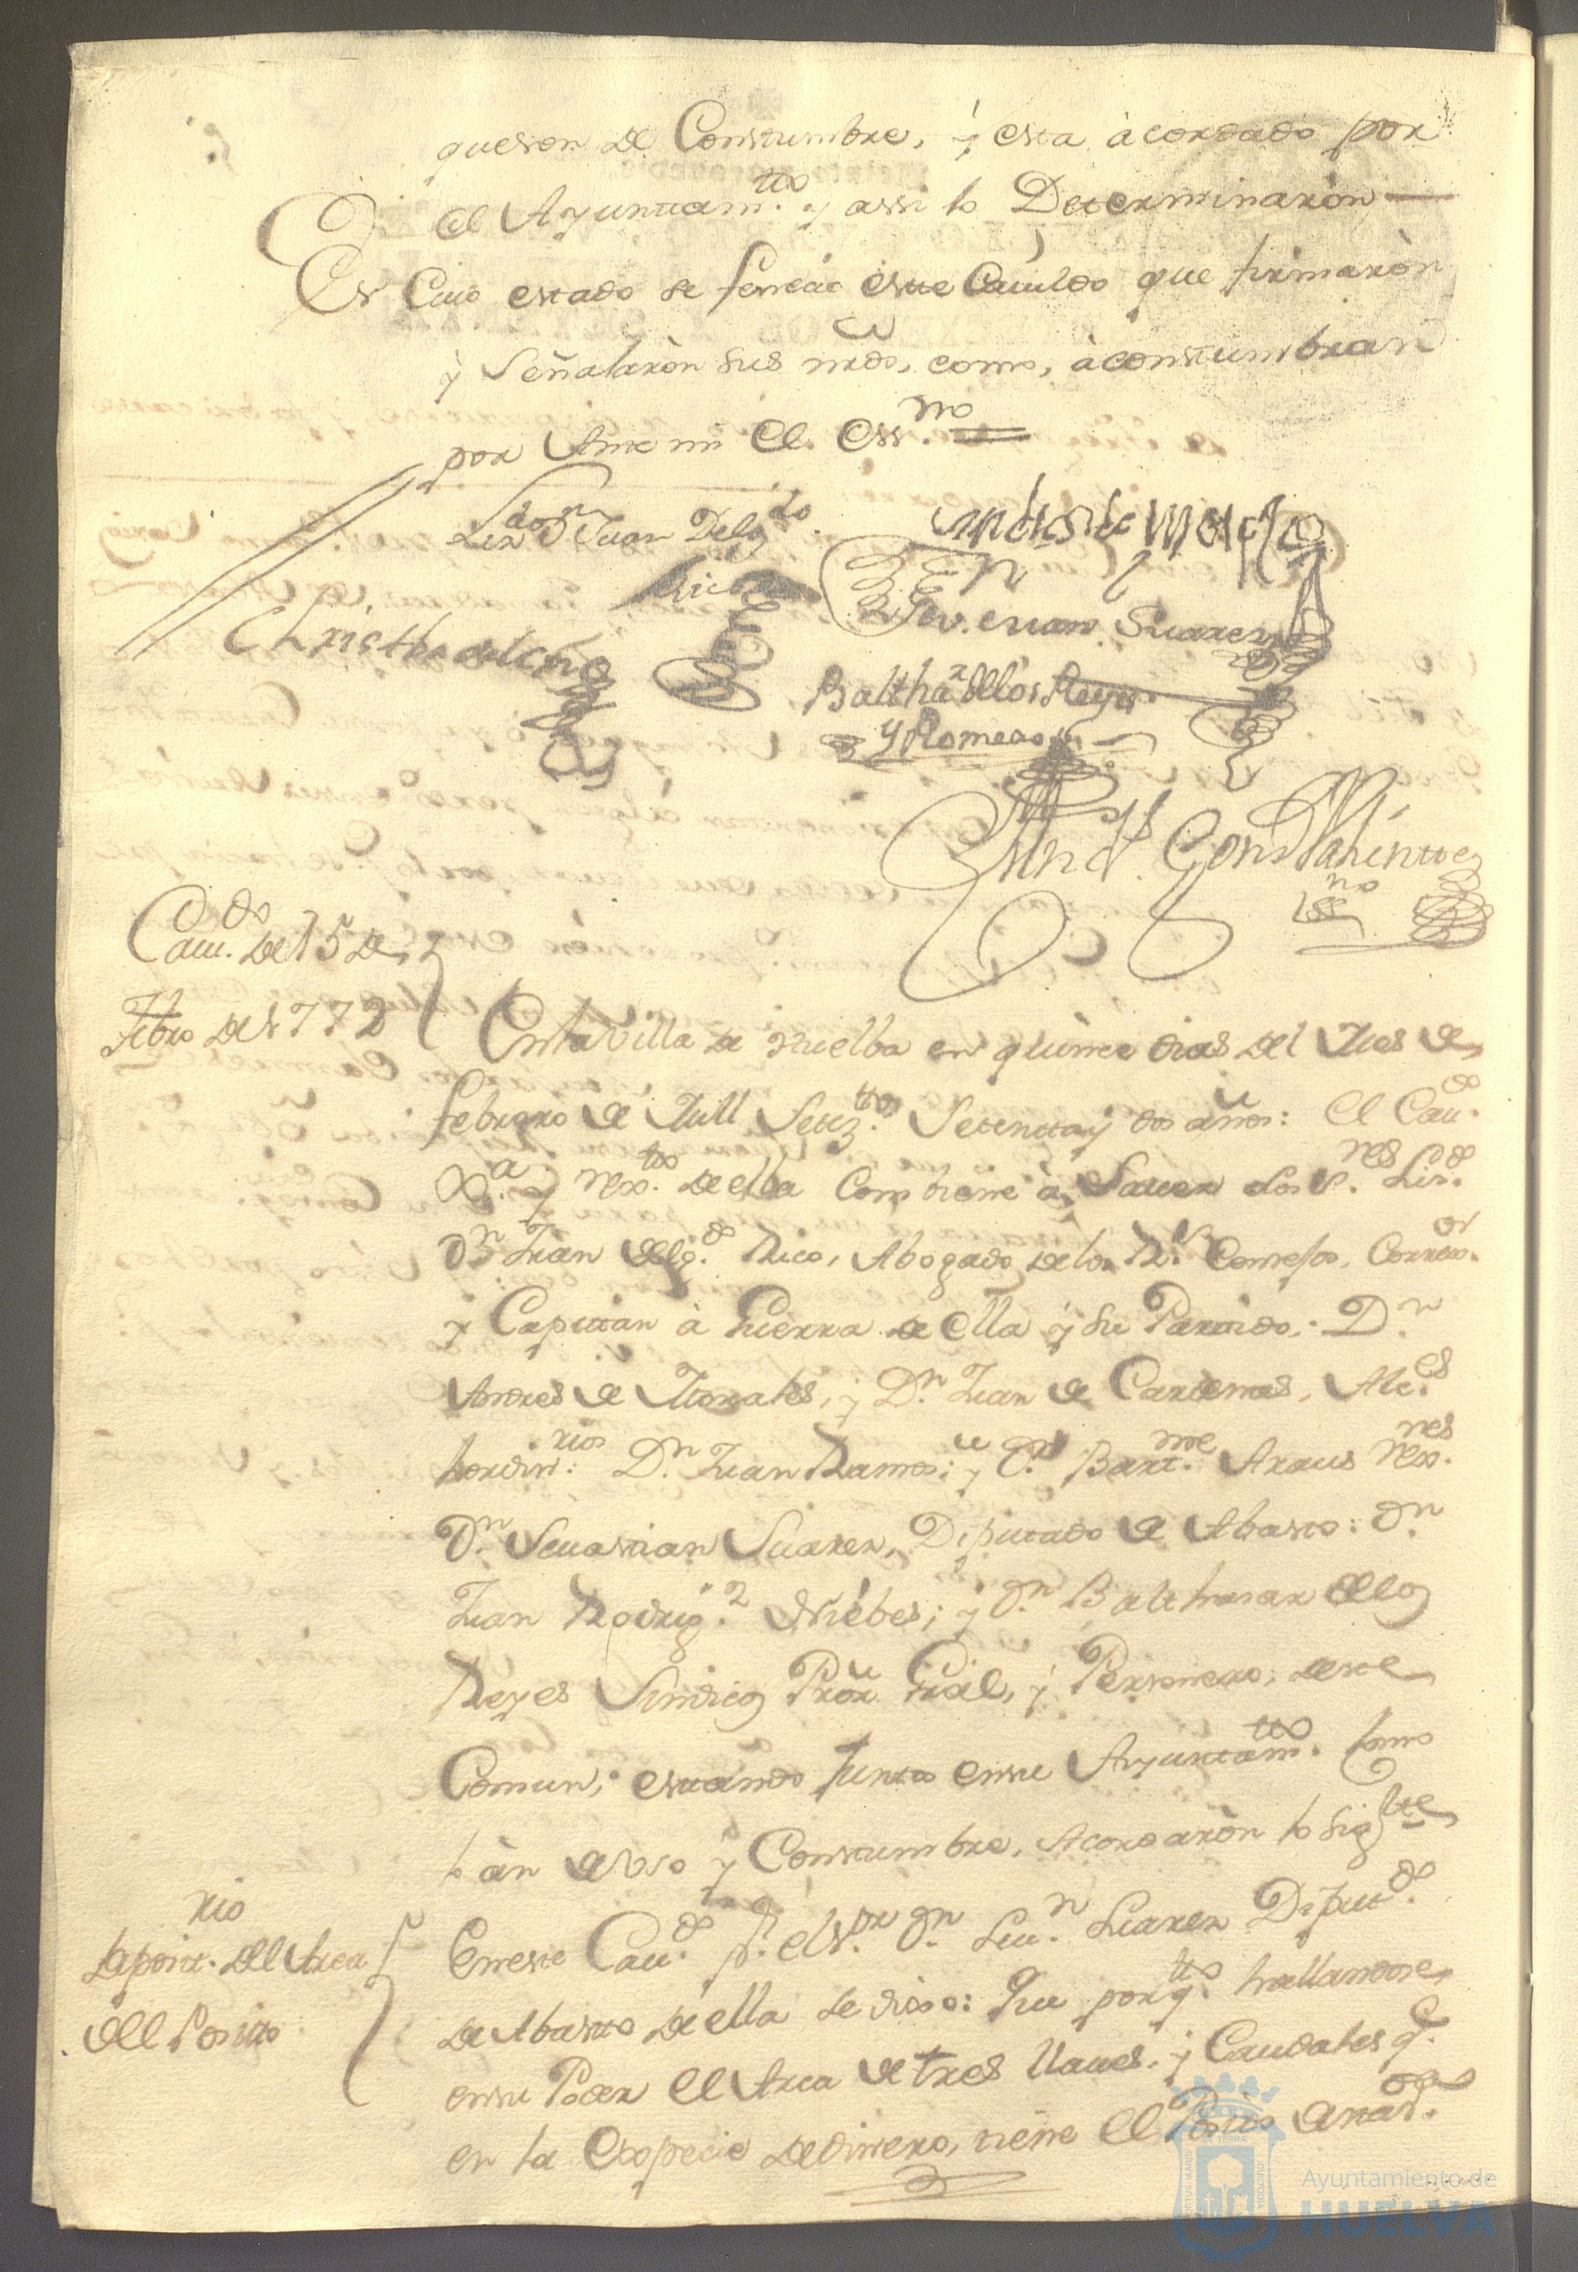 queson de Constumbre, y esta àcordado por
el Ayuntam.tto y assi lo Determinaròn
En Cuio estado se feneciò este Cauildo que firmaròn
y Señalaròn sus mrds, como, àconstumbran
por Ante mi El Ess.no
Lizdo Dn Juan Delgdo
Rico
Andres de Morales
Sev.an Suarez
Balthar dellos Reyes
y Romero
Ante mi
Constantino
Essno
Cau.do de 15 de
Febro de 1772
En la Villa de Huelba en quinze dias del Mes de
febrero de Mill Setez.ttos Setenta y dos años: El Cau.do
Xa. y rex.tto de ella Combiene à Sauer Los S.res Liz.do
Dn Juan Delg.do Rico, Abogado de los R.s Consejos, Correx.or
y Capittan à Guerra de ella y su Partido,. D.n
Andres de Morales, y D.n Juan de Cardenas, Alc.es
hordin.rios D.n Juan Ramos; y D.n Bart.me Araus Rex.res
D.n Seuastian Suarez, Diputado de Abasto: D.n
Juan Rodrig.z de Niebes; y D.n Balthasar dellos
Reyes Sindico Pror Gral, y Personero, deste
Comun; estando Junto en su Ayuntam.tto como
lo àn de Vso y Constumbre, Acordaròn lo sigtte
En este Cau.do p.r el S.or D.n Seu.n Suarez Diput.do
de Abasto de ella se dixo: Que por q.tto hallandose
en su Poder El Arca de tres llaues, y Caudales q.e
en la Expecie de dinero, tiene El Posito
Depoxit.rio del Arca
del Positto
Ayuntamiento de
HUELVA